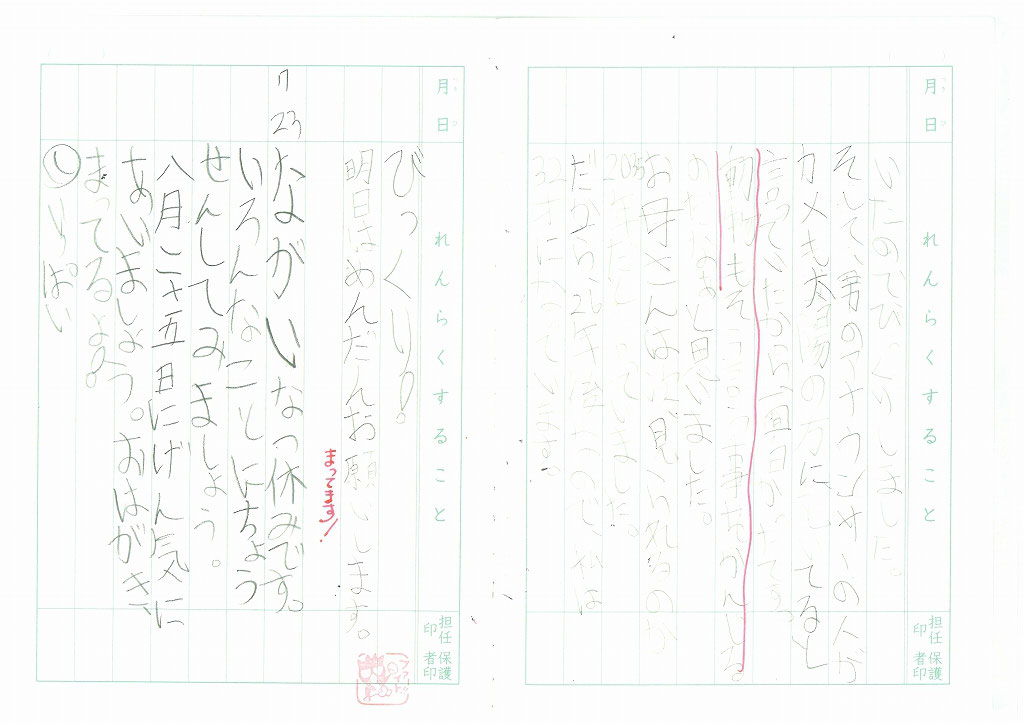 月日 れんらくすること 担任印 保護者印
いたのでびっくりしました。
そして、男のアナウンサーの人が
カメも太陽の方に
言っていたから面白かったです。
動物もそう言う事もかんじ
のだなぁと思いました。
お母さんは次見られるのが
2035年だと言っていました。
だから、26年後なので、私は
32才になっています。
月日 れんらくすること 担任印 保護者印
びっくり。
明日はめんだんお願いします。
まってます!
7 23 ながいなつ休みです。
いろんなことにちょう
せんしてみましょう。
八月二十五日にげん気に
あいましょう。おはがき、
まってるよ。
いっぱい